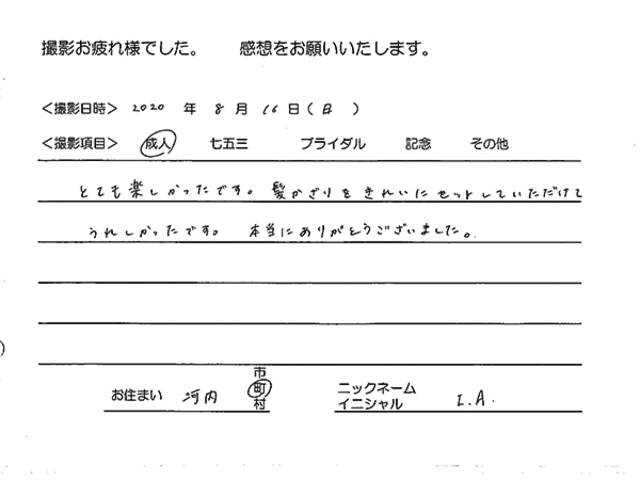 撮影お疲れ様でした。 感想をお願いいたします。
＜撮影日時＞ 2020 年 8 月 16 日（日）
＜撮影項目＞ 成人 七五三 ブライダル 記念 その他
とても楽しかったです。髪かざりをきれいにセットしていただけて
うれしかったです。 本当にありがとうございました。
お住まい 河内 市 町 村
ニックネーム イニシャル I.A.